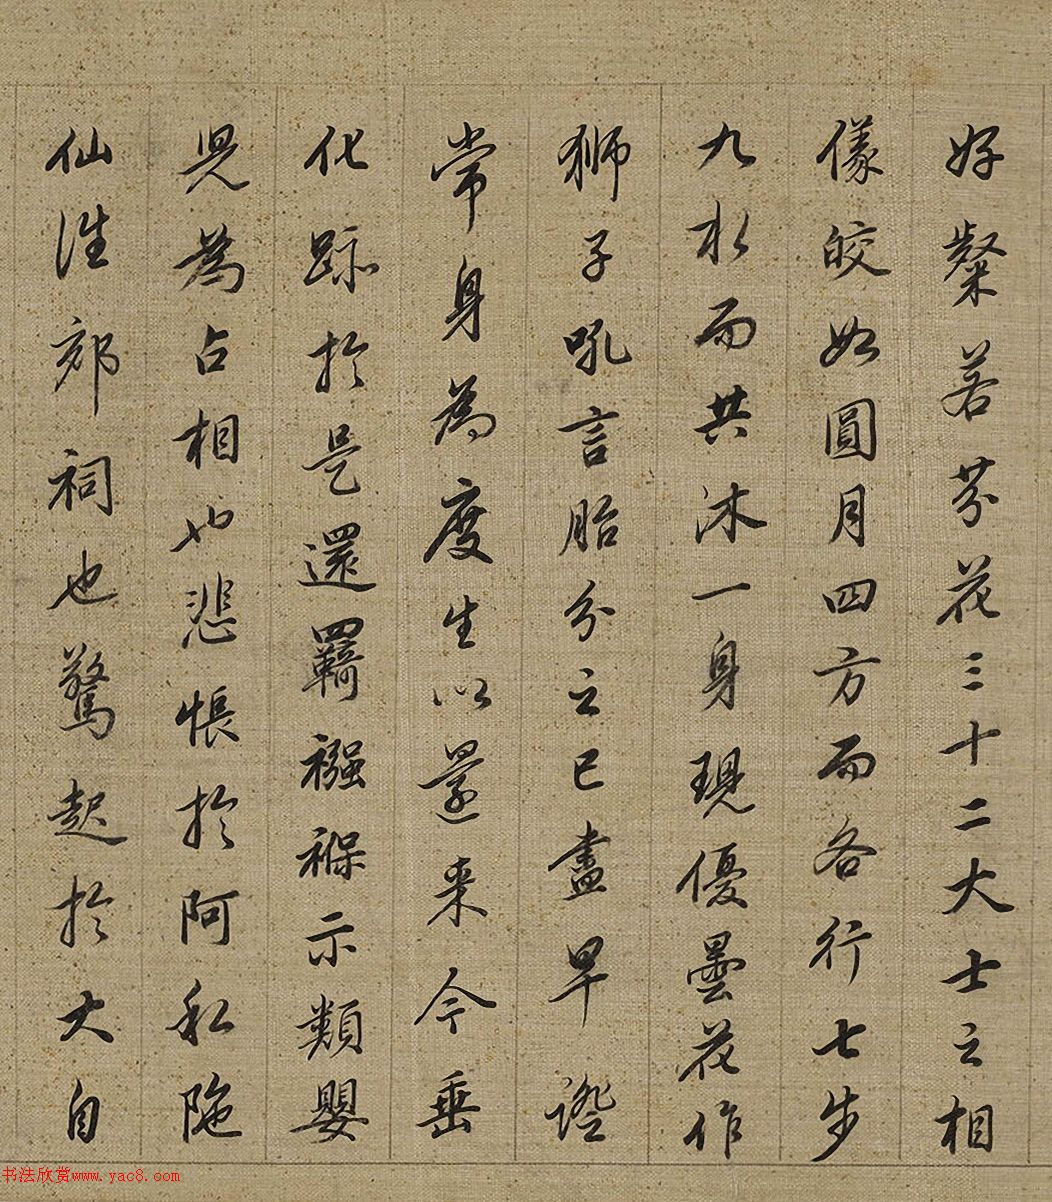 好粲若芬花三十二大士之相
儀皎如圓月四方而各行七步
九水而共沐一身現優曇花作
獅子吼言胎分之已盡早證
常身為度生以還来今垂
化跡於是還羈襁褓示類嬰
児為占相也悲悵於阿私陁
仙淮郊祠也驚起於大自
书法欣赏www.yac8.com